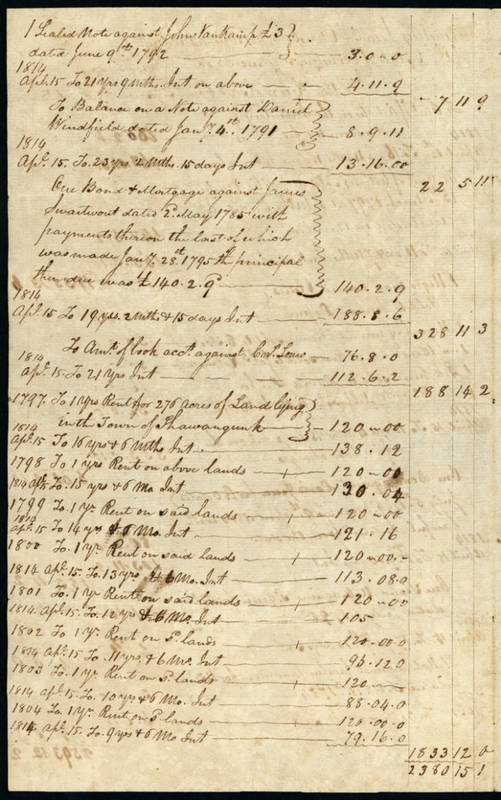 1 Sealed Note against John Vankamp £3
dated June 9th 1792 — 3.0-0
1814
Apl. 15 To 21 yrs 9 Mths. Int on above — 4.11.9
7 11 9
To Balance on a Note against Daniel
Windfield dated Jany. 4th. 1791 — 8.9.11
1814
Apl. 15. To 23 yrs 2 Mths. 15 days Int — 13.16.00
22 5 11
One Bond & Mortgage against James
Swartwout dated 2d May 1785 with
payments thereon the last of which
was made Jany. 28th 1795 the principal
then due was £140.2.9 — 140.2.9
1814
Apl. 15 To 19 yrs. 2 Mths & 15 days Int — 188.8.6
328 11 3
To Amt. of book acct. against Corl. Louw — 76.8.0
1814
Apl. 15. To 21 yrs Int — 112.6.2
188 14 2
1797. To 1 yrs Rent for 276 acres of Land lying
in the Town of Shawangunk — 120-00
1814
Apl. 15 To 16 yrs & 6 Mths Int — 138.12
1798 To 1 yrs Rent on above lands — 120-00
1814 Apl. 15 To. 15 yrs & 6 Mo. Int — 130.04
1799 To. 1 yr. Rent on said lands — 120-00
1814
Apl. 15 To 14 yrs & 6 Mo. Int — 121.16
1800 To 1 yr. Rent on said lands — 120-00-
1814 Apl. 15 To. 13 yrs & 6 Mo. Int — 113.08.0
1801 To. 1 yr Rent on said lands — 120-00
1814. Apl. 15. To. 12 yrs & 6 Mo. Int — 105
1802 To 1 yr. Rent on Sd. lands — 120-00.0
1814 Apl. 15 To. 11 yrs. & 6 Mo. Int — 96.12.0
1803 To. 1 yr. Rent on Sd. lands — 120 —
1814 Apl. 15. To. 10 yrs & 6 Mo. Int — 88.04.0
1804 To. 1 yr. Rent on Sd. lands — 120.00.0
1814 Apl. 15. To 9 yrs & 6 Mo Int — 79.16.0
1833 12 0
2380 15 1